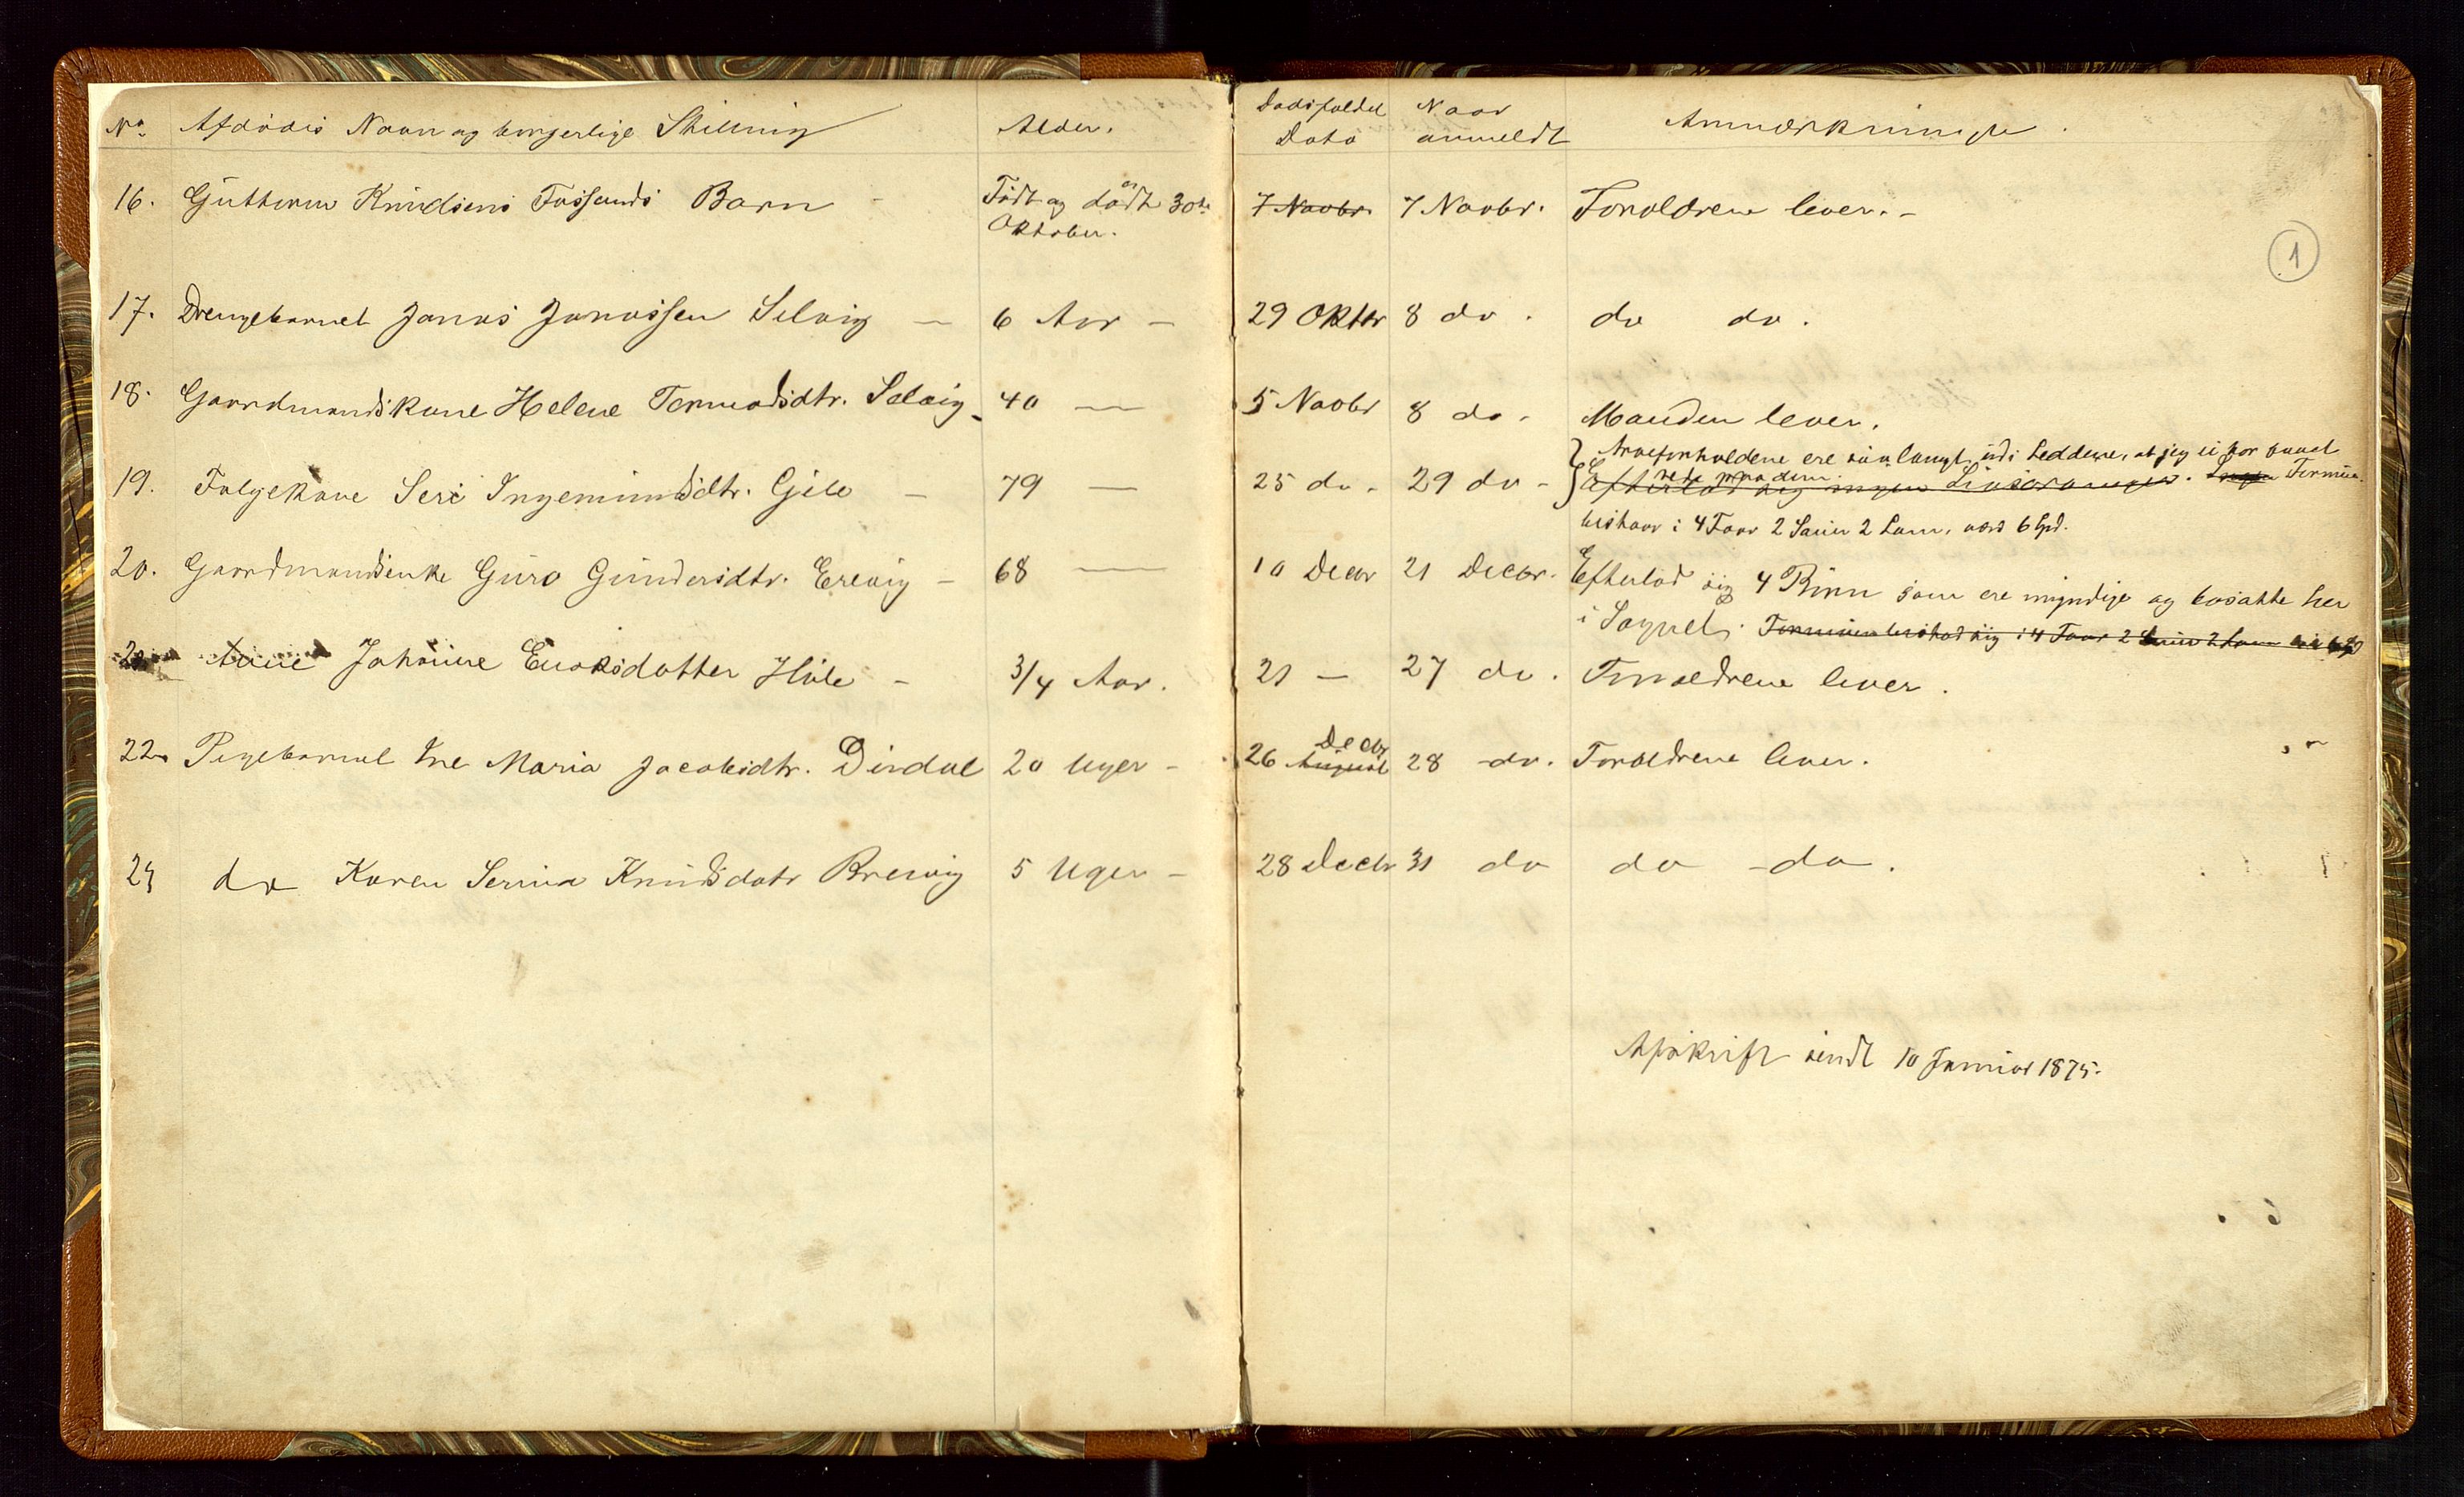 No. Afdödes Navn og borgerlige Stilling Alder. Dødsfaldet Dato Naar anmeldt Anmærkninger.
16. Guttorm Knudsens Fossands Barn Födt og død 30te Oktober. 7 Novbr. 7 Novbr. Forældrene lever. -
1
17. Drengebarnet Jonas Jonassen Selvig — 6 Aar — 29 Oktbr 8 do. do do.
18. Gaardmandskone Helene Tormodsdtr. Selvig 40 — 5 Novbr 8 do. Manden lever.
Arveforholdene ere saa langt ud i Leddene, at jeg ei har kunet
rede paa dem.
19. Folgekone Seri Ingemundsdtr. Gilje — 79 — 25 do. 29 do - Efterlod sig ingen Livsarvinger. Ingen Formue
bestaar i 4 Faar 2 Sauer 2 Lam, værd 6 Spd.
20. Gaardmandsenke Guro Gundersdtr. Erevig — 68 — 10 Decbr 21 Decbr. Efterlod sig 4 Börn som ere myndige og bosatte her
i Sognet. Formuen bestod sig i 4 Faar 2 Sauer 2 Lam
Anne Johanne Enoksdatter Hole — 3/4 Aar. 21 — 27 do. Forældrene lever.
22. Pigebarnet Ane Maria Jacobsdtr. Dirdal 20 Uger — 26 August Decbr 28 do. Forældrene lever.
23 do Karen Serina Knudsdatr Brevig 5 Uger — 28 Decbr 31 do do - do.
Afskrift sendt 10 Januar 1875.